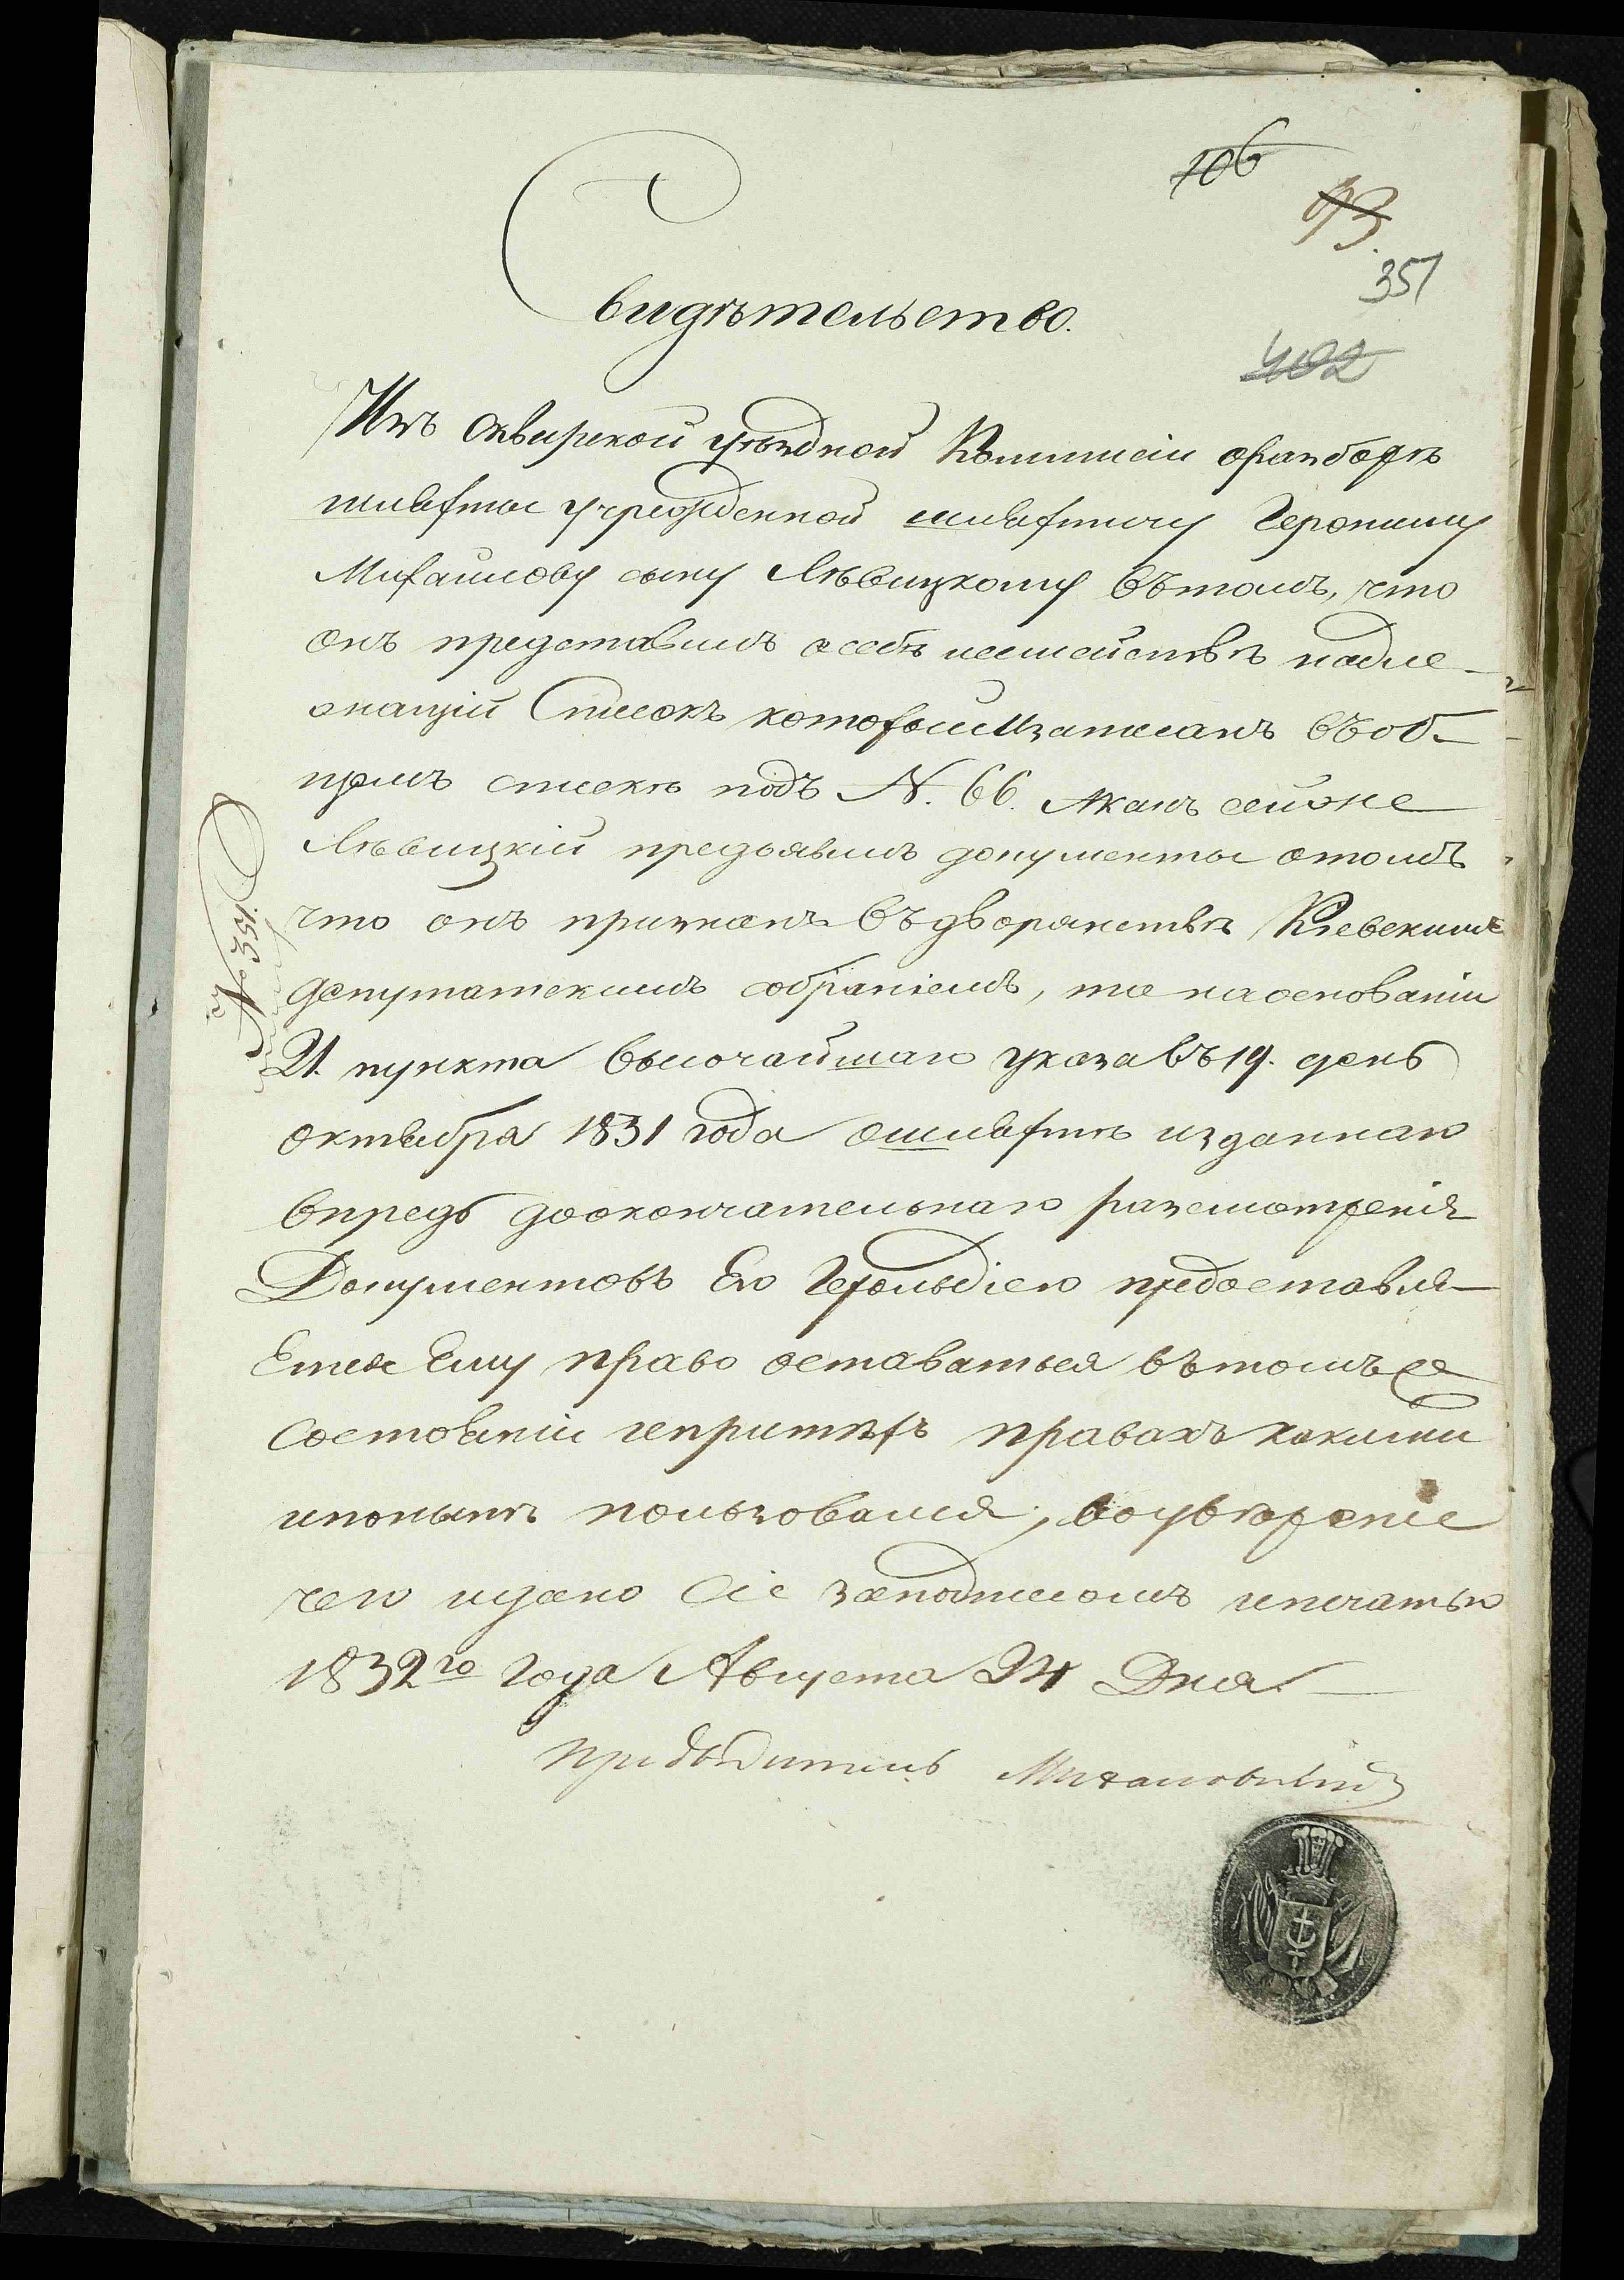 106
93
351
402
Свидѣтельство.
Изъ Сквирской уѣздной Коммисіи оразборѣ
шляхты учрежденной шляхтичу Герониму
Михайлову сыну Лѣвицкому вътомъ, что
онъ представилъ о себѣ исемействѣ надле-
жащій Списокъ который изаписанъ въоб-
щемъ спискѣ подъ N. 66. Акакъ сейже
Лѣвицкій предъявилъ документы отомъ
что онъ признанъ въдворянствѣ Кіевскимъ
депутатскимъ собраніемъ, то наоснованіи
21. пункта высочайшаго указа въ 19. день
октября 1831 года ошляхтѣ изданнаго
впредь доокончательнаго разсмотренія
Документовъ Его Герольдіею предоставля-
Ется Ему право оставаться вътомъже
состояніи ипритѣхъ правахъ какими
ипонынѣ пользовался, воувѣреніе
чего идано Сіе заподписомъ ипечатью
1832го Года Августа 24 Дня
Предводитель
№ 351.